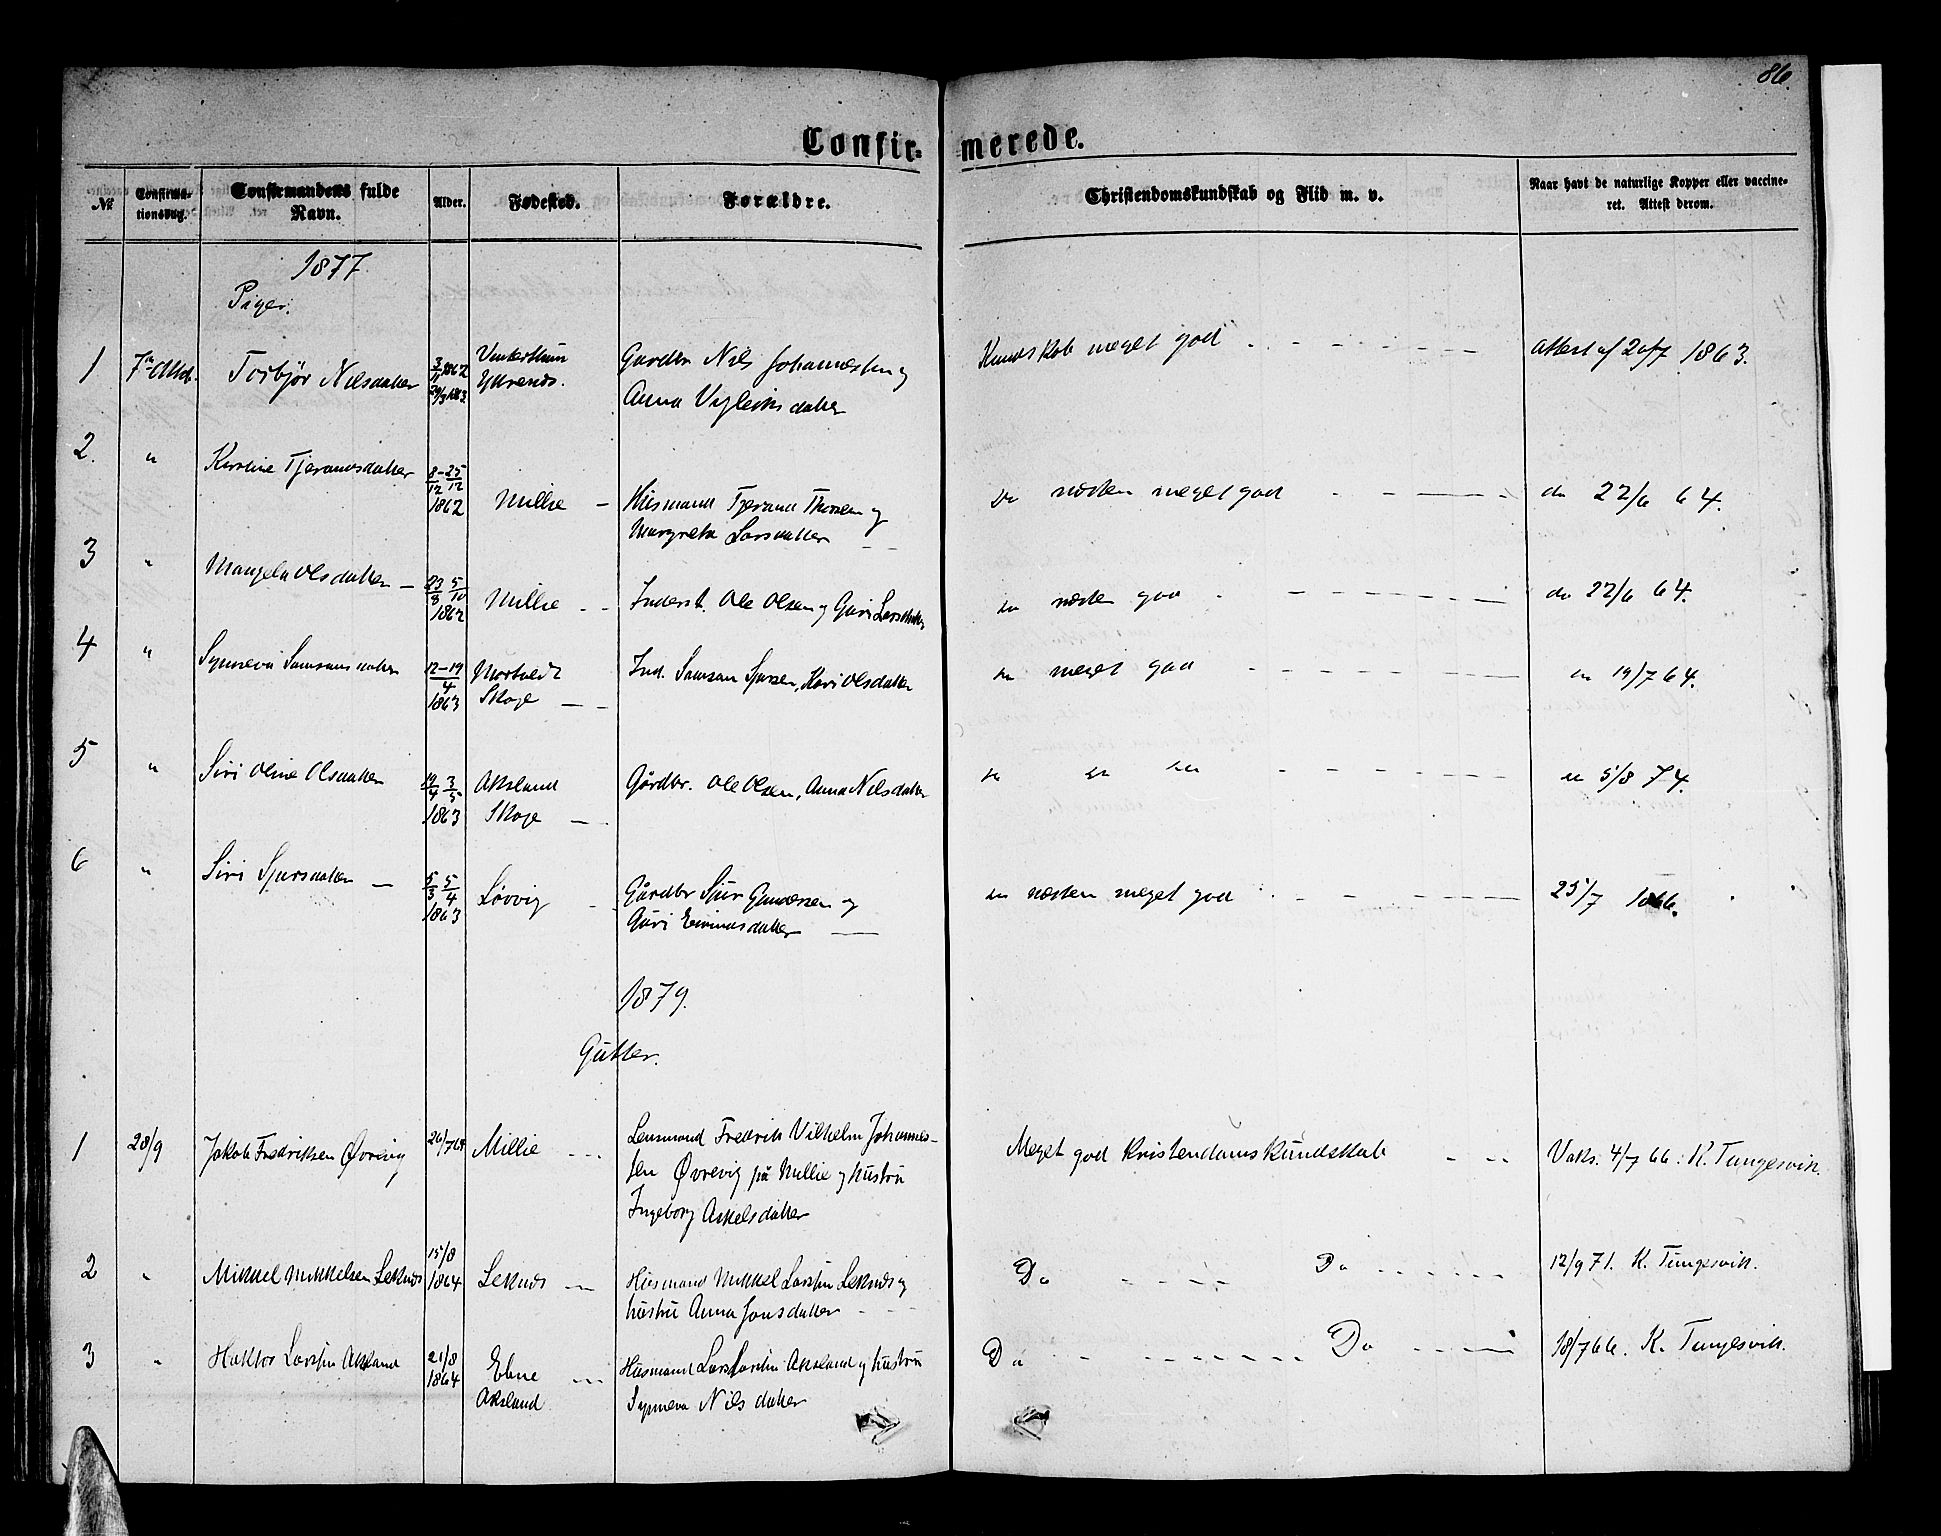 86.
Confirmerede.
№
Confirmationsdag.
Confirmandens fulde Navn.
Alder.
Fødested.
Forældre.
Christendomskundskab og Flid m. v.
Naar havt de naturlige Kopper eller vaccineret. Attest derom.
1877.
Piger.
1 7de Okt. Torbjør Nilsdatter 3/11 1862 29/3 1863 Ytrenæs. Gardbr Nils Johannessen og Kundskab meget god attest af 20/7 1863.
Anna Vigleiksdatter
2. " Kirstine Tjeransdatter 8/12 - 25/12 1862 Millie Husmand Tjerand Thorsen og Do næsten meget god do 22/6 64.
Margreta Larsdatter
3 " Mangela Olsdatter 23/8 5/10 1862 Millie Inderst. Ole Olsen og Guri Larsdatter do næsten god do 22/6 64.
4 " Synneva Samsonsdatter 12-19/4 1863 Mortveit Skoge Ind. Samson Sjursen, Kari Olsdatter do meget god do 19/7 64.
5 " Siri Oline Olsdatter 19/4 3/5 1863 Aksland Skoge Gårdbr. Ole Olsen, Anna Nilsdatter do do do do 5/8 74.
6 " Siri Sjursdatter 5/3 5/4 1863 Løvvig Gårdbr Sjur Gundersen og do næsten meget god 25/7 1866.
Guri Eivindsdatter
1879.
Gutter.
1 28/9 Jakob Fredriksen Øvrevig 26/7 64 Millie Lensmand Fredrik Vilhelm Johannes- Meget god Kristendomskundskab Vaks. 4/7 66: K. Tungesvik.
sen Øvrevig på Millie og hustru
Ingeborg Askelsdatter
2 " Mikkel Mikkelsen Leknes 15/8 1864 Leknes Husmand Mikkel Larssen Leknes og Do Do 12/9 71. K. Tungesvik.
hustru Anna Jonsdatter
3 " Haktor Larssen Aksland 21/8 1864 Ebne Aksland Husmand Lars Larssen Aksland og hustru Do Do 18/7 66. K. Tungesvik.
Synneva Nilsdatter